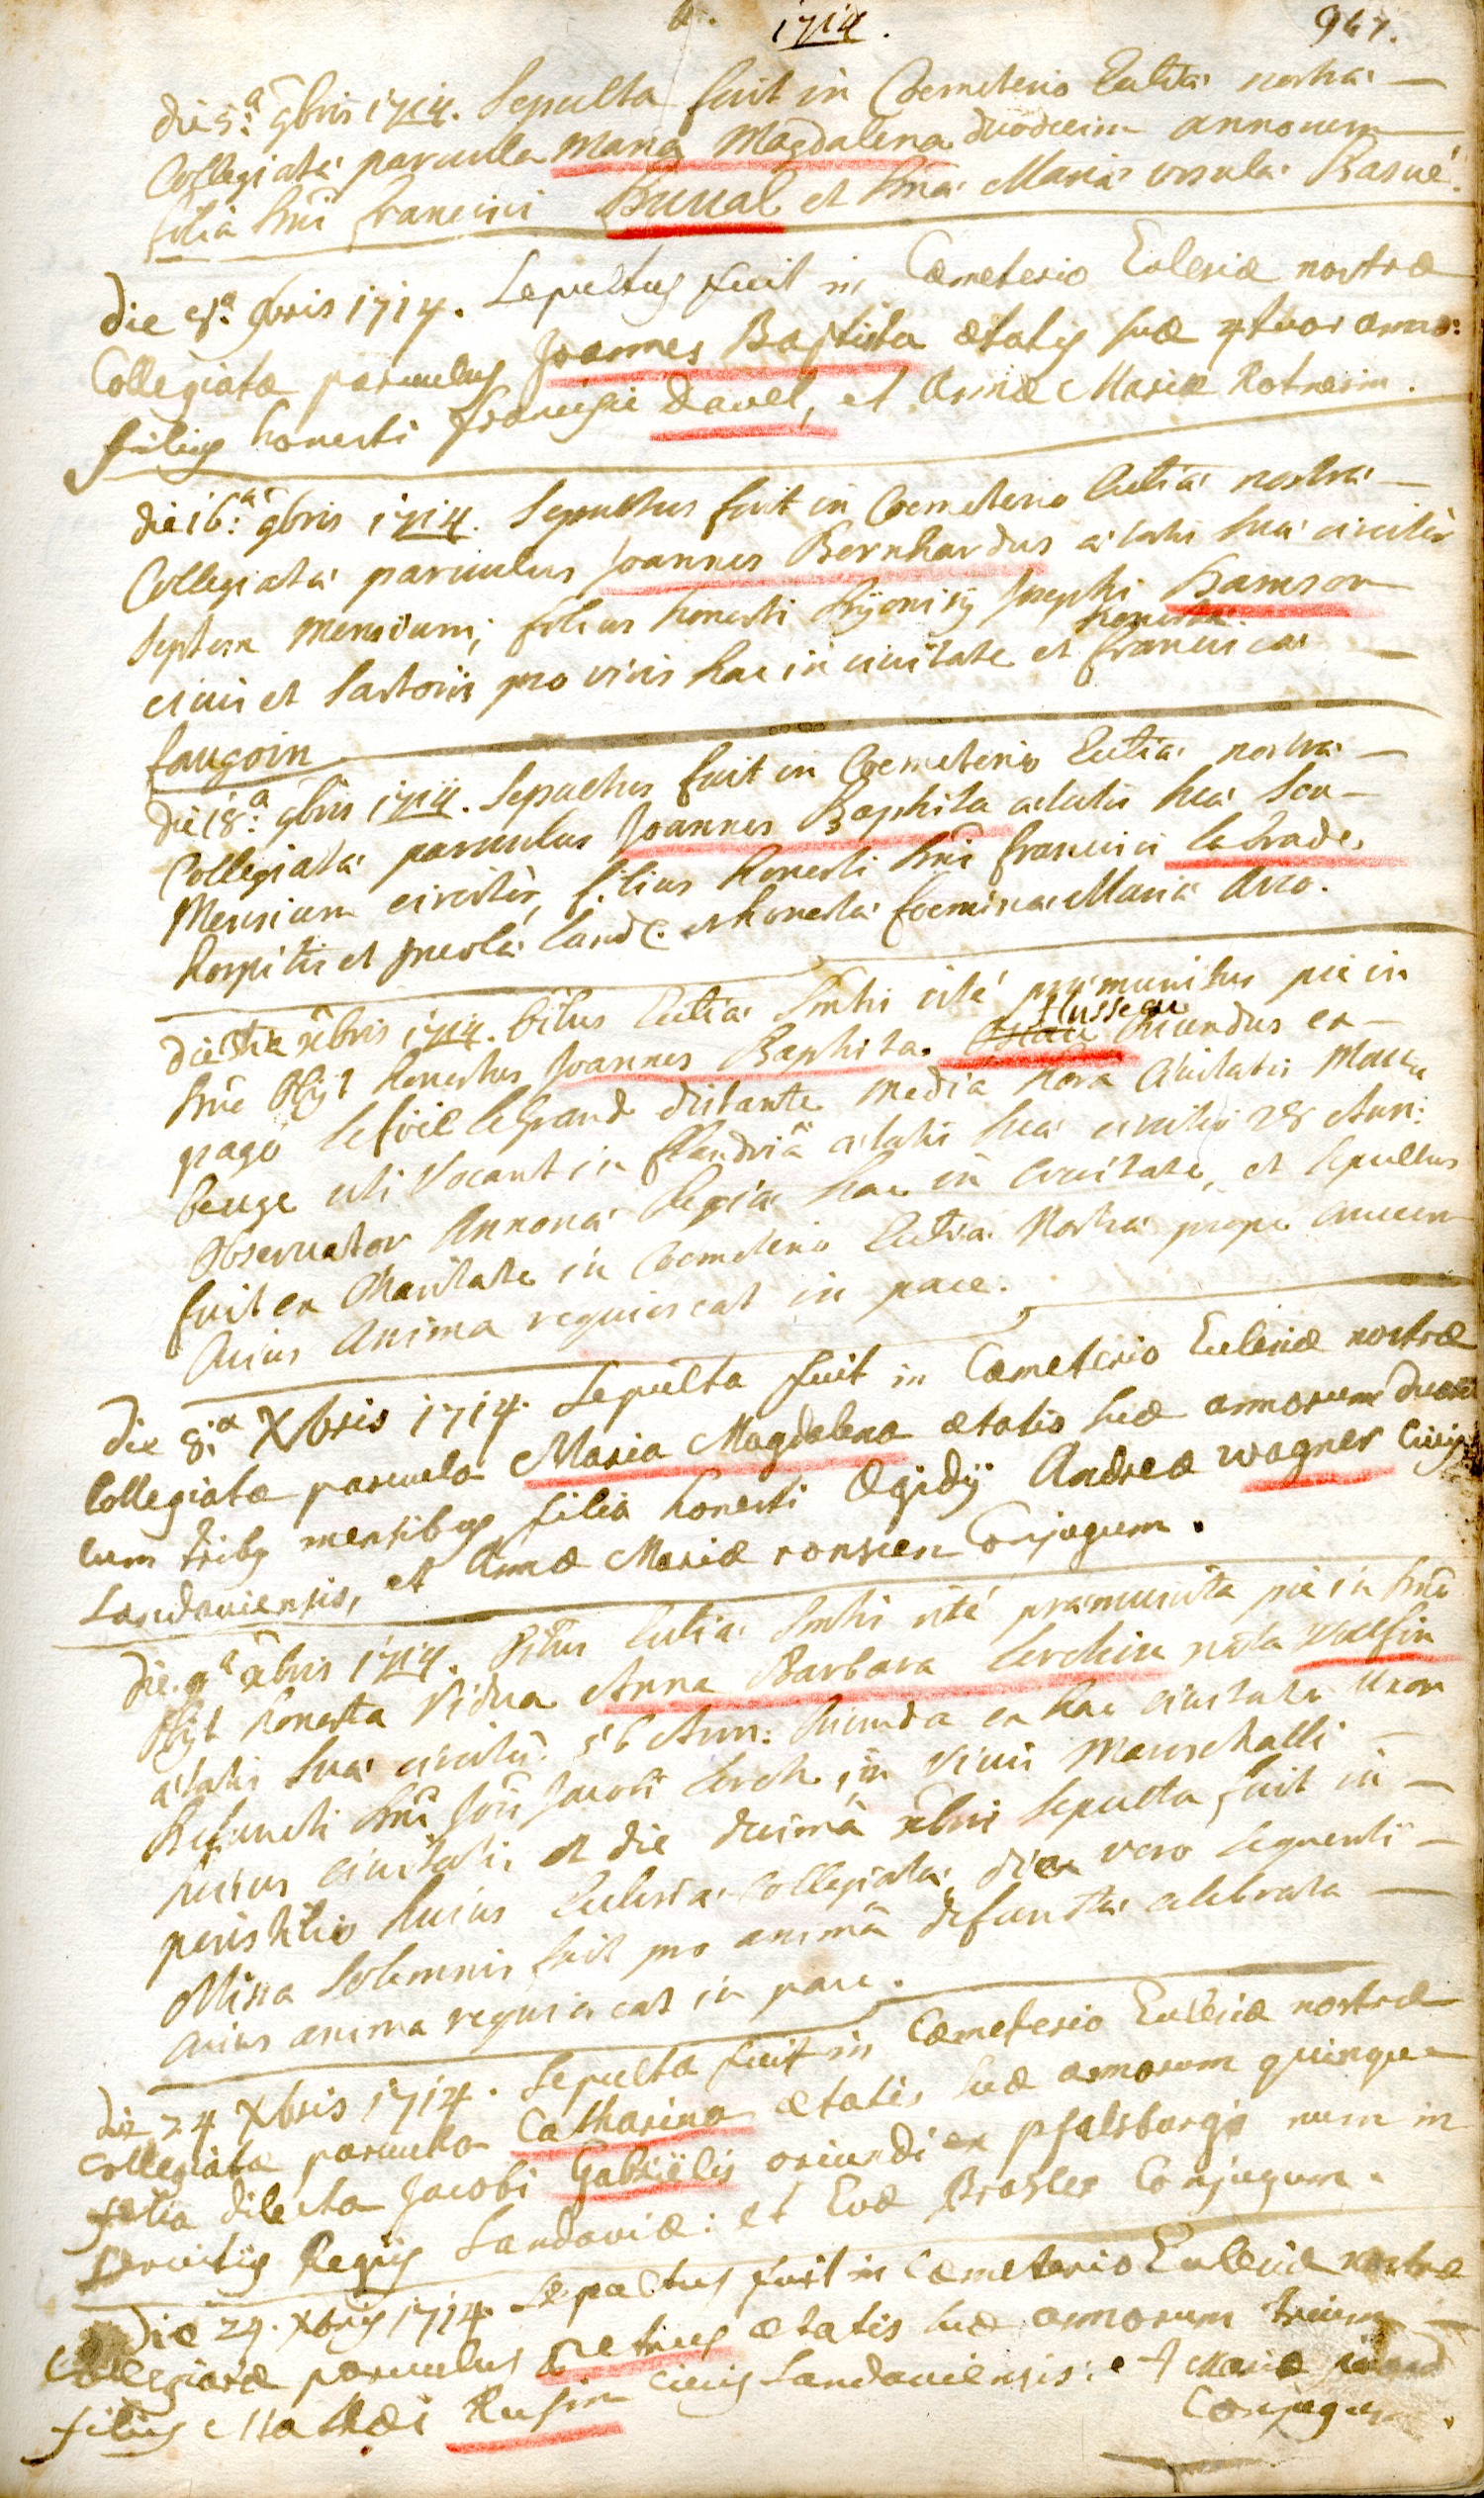 1714.
967.
die 5.a 9bris 1714. Sepulta fuit in Coemeterio Eccliæ nostræ
Collegiatæ parvula Maria Magdalena duodecim annorum
filia Francisci et Mariæ Ursulæ Basué.
die 8.a 9bris 1714. Sepultus fuit in Cæmeterio Eclesiæ nostræ
Collegiatæ parvulus Joannes Baptista ætatis suæ 4tuor anno:
filius honesti francisci davel, et Annæ Mariæ Rotnerin.
die 16.a 9bris 1714. Sepultus fuit in Coemeterio Eccliæ nostræ
Collegiatæ parvulus Joannes Bernhardus ætatis suæ circiter
septem mensium, filius honesti Josephi Hamson
civis et Sartoris pro viris hac in civitate et honestæ Franciscæ
faugoin
die 18.a 9bris 1714. Sepultus fuit in Coemeterio Eccliæ nostræ
Collegiatæ parvulus Joannes Baptista ætatis suæ sex
Mensium circiter, filius honesti Francisci labrade,
hospitis et incolæ et honestæ foeminæ Mariæ
xbris 1714. Eccliæ rité præmunitus pie in
obijt honestus Joannes Baptista Husseau oriundus ex
pago le Grand distante media hora Civitatis Mau
beuge uti vocant in flandriâ ætatis suæ circiter 28 Ann:
Observator Annonæ Regiæ hac in Civitate, et sepultus
fuit ex Charitate in Coemeterio Eccliæ Nostræ prope crucem
cuius anima requiescat in pace.
die 8.a Xbris 1714. Sepulta fuit in Cæmeterio Eclesiæ nostræ
Collegiatæ parvula Maria Magdalena ætatis suæ annorum duorum
cum tribus mensibus filia honesti Ægidij Andreæ wagner Civis
Landaviensis, et Annæ Mariæ Conjugum.
die 9.a xbris 1714. Eccliæ rité præmunita pie in
obijt honesta Vidua Anna Barbara Lerchin nata Wulfin
ætatis suæ circiter 56 Ann: oriunda ex hac civitate uxor
defuncti Jacobi Lerch, in vivis Mareschalli
huius civitatis et die decimâ xbris sepulta fuit in
peristilio huius Eclesiæ Collegiatæ, die vero sequenti
Missa Solemnis fuit pro animâ defunctæ celebrata
cuius anima requiescat in pace.
die 24 Xbris 1714. Sepulta fuit in Cæmeterio Eclesiæ nostræ
Collegiatæ parvula Catharina ætatis suæ annorum quinque
filia dilecta Jacobi Gabriëlis oriundi ex pfalsburgo num in
servitijs Regijs Landaviæ: et Evæ Brasler Conjugum.
Die 29. Xbris 1714. Sepultus fuit in Cæmeterio Eclesiæ nostræ
Collegiatæ parvulus Petrus ætatis suæ annorum trium
filius Mathæi Rusin Civis Landaviensis: et Mariæ
Conjugum.